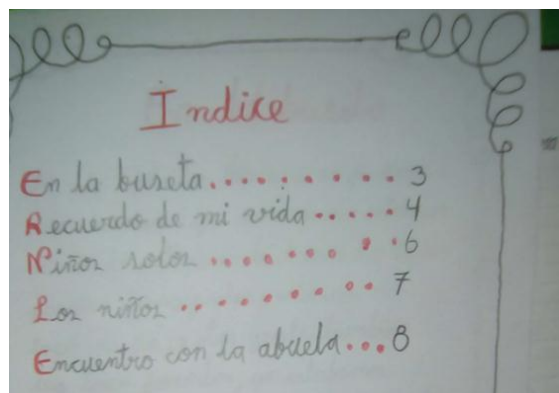 Indice
En la buseta.......... 3
Recuerdo de mi vida..... 4
Niños solos ......... 6
Los niños ......... 7
Encuentro con la abuela... 8